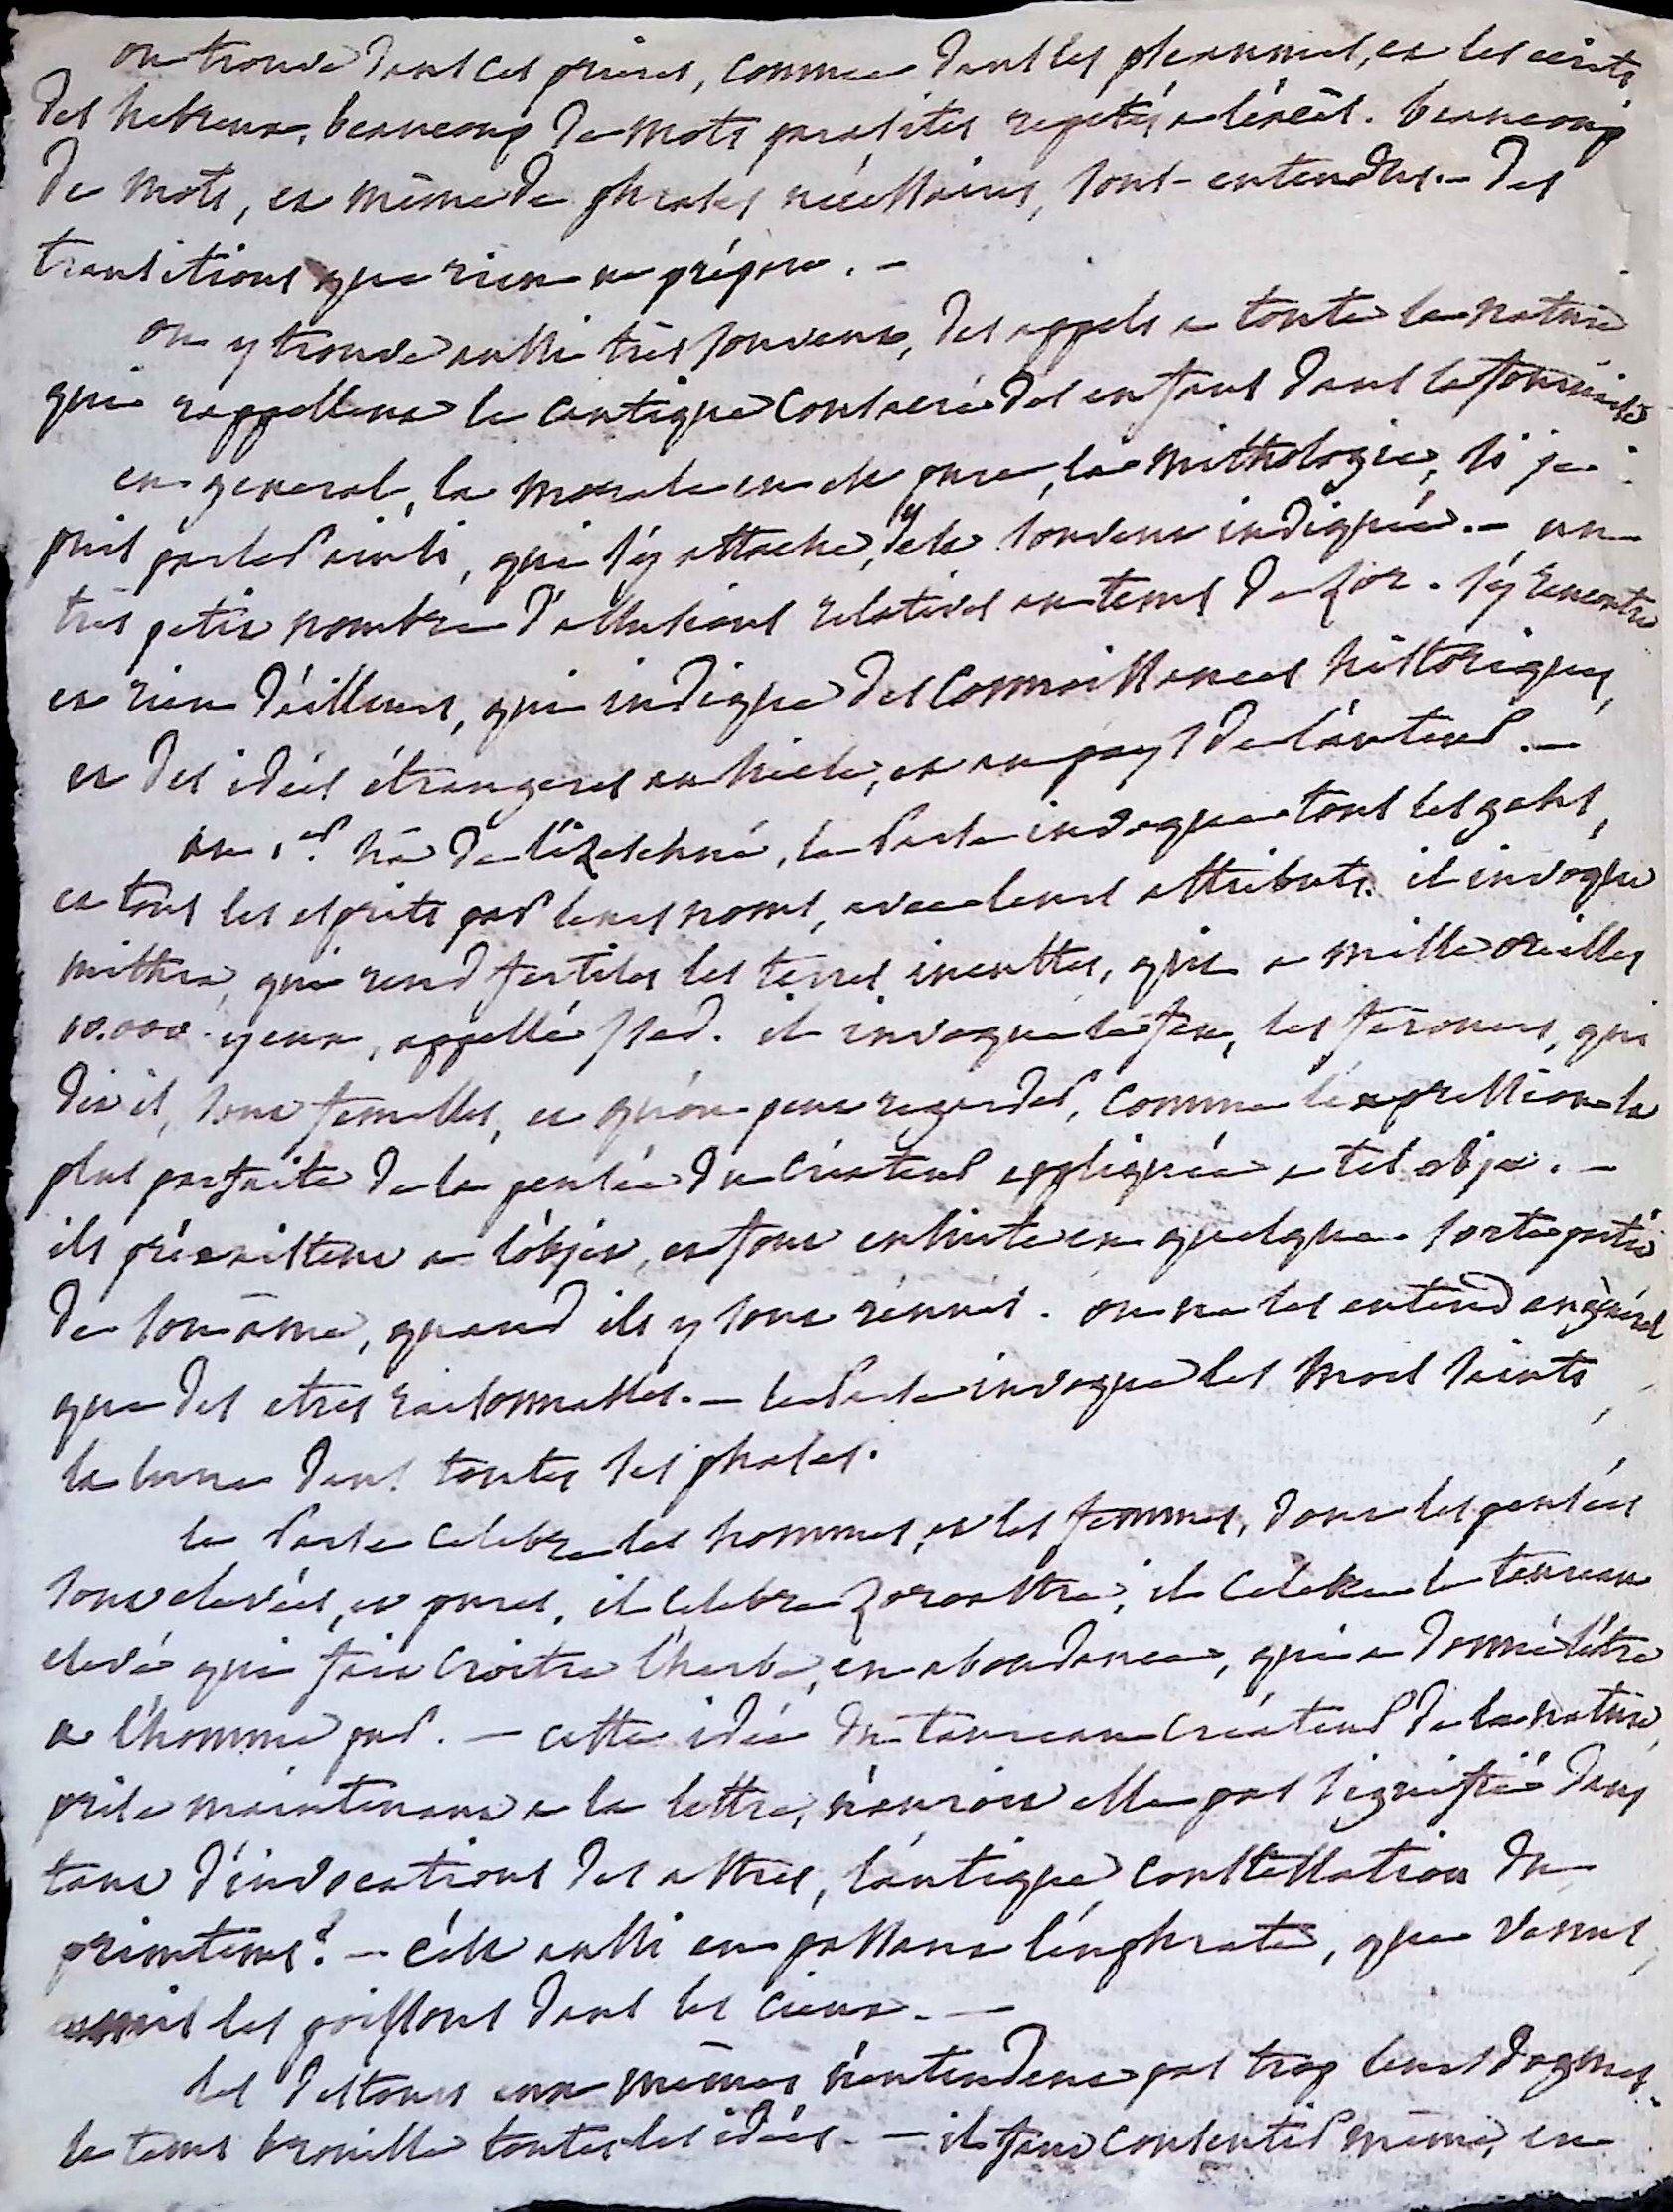 on trouve dans ces prieres, comme dans les pseaumes, et les ecrits
des hebreux, beaucoup de mots parasites repetés a l'excès. beaucoup
de mots, et même de phrases nécessaires, sous-entendus. – des
transitions que rien ne prépare. –
on y trouve aussi très souvent, des appels a toute la nature
qui rappellent le cantique consacré des enfans dans la fournaise
en general, la morale en est pure, la mithologie, si je
puis parler ainsi, qui s'y attache, y est souvent indiquée. – un
très petit nombre d'allusions relatives au tems de Zor. s'y rencontre
et rien d'ailleurs, qui indique des connoissances historiques,
et des idées étrangeres au siecle, et au pays de l'auteur. –
au 1er. hâ de l'izeschné, le Parse invoque tous les gahs,
et tous les esprits par leurs noms, avec leurs attributs. il invoque
mithra, qui rend fertiles les terres incultes, qui a mille oreilles
10.000 yeux, appellé Ized. il invoque le feu, les ferouers, qui
dit il, sont femelles, et qu'on peut regarder, comme l'expression la
plus parfaite de la pensée du créateur appliquée a tel objet. –
ils préexistent a l'objet, et font ensuite en quelque sorte partie
de son âme, quand ils y sont réunis. on ne les entend en général
que des etres raisonnables. – le Parse invoque les mois saints,
la lune dans toutes ses phases.
le Parse celebre les hommes, et les femmes, dont les pensées
sont elevées, et pures, il celebre Zoroastre, il celebre le taureau
elevé qui fait croitre l'herbe, en abondance, qui a donné l'être
a l'homme pur. – cette idée du taureau créateur de la nature,
prise maintenant a la lettre, n'auroit elle pas signifié dans
tant d'invocations des astres, l'antique constellation du
printems? – c'est aussi en passant l'euphrate, que venus
mit les poissons dans les cieux. –
les destours eux mêmes n'entendent pas trop leurs dogmes.
le tems brouille toutes les idées. – il faut consentir même, en